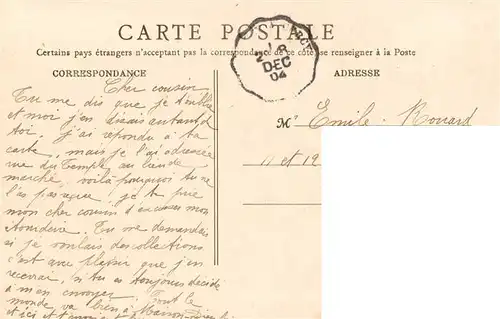 CARTE POSTALE
Certains pays étrangers n'acceptant pas la correspondance de ce côté se renseigner à la Poste
CORRESPONDANCE
ADRESSE
2
18
DEC
04
Cher cousin
Tu me dis que je t'oublie
et moi j'en dirais autant de
toi, j'ai répondu à ta
carte, mais je l'ai adressée
rue du Temple, au lieu de
marché, voilà pourquoi tu ne
l'as pas reçue, je te prie
mon cher cousin d'excuser mon
étourderie. Tu me demandais
si je voulais des collections
c'est avec plaisir que j'en
recevrai, si tu es toujours décidé
à m'en envoyer. Tout le
monde va bien à
et ici
M. Emile Rouard
11 et 12